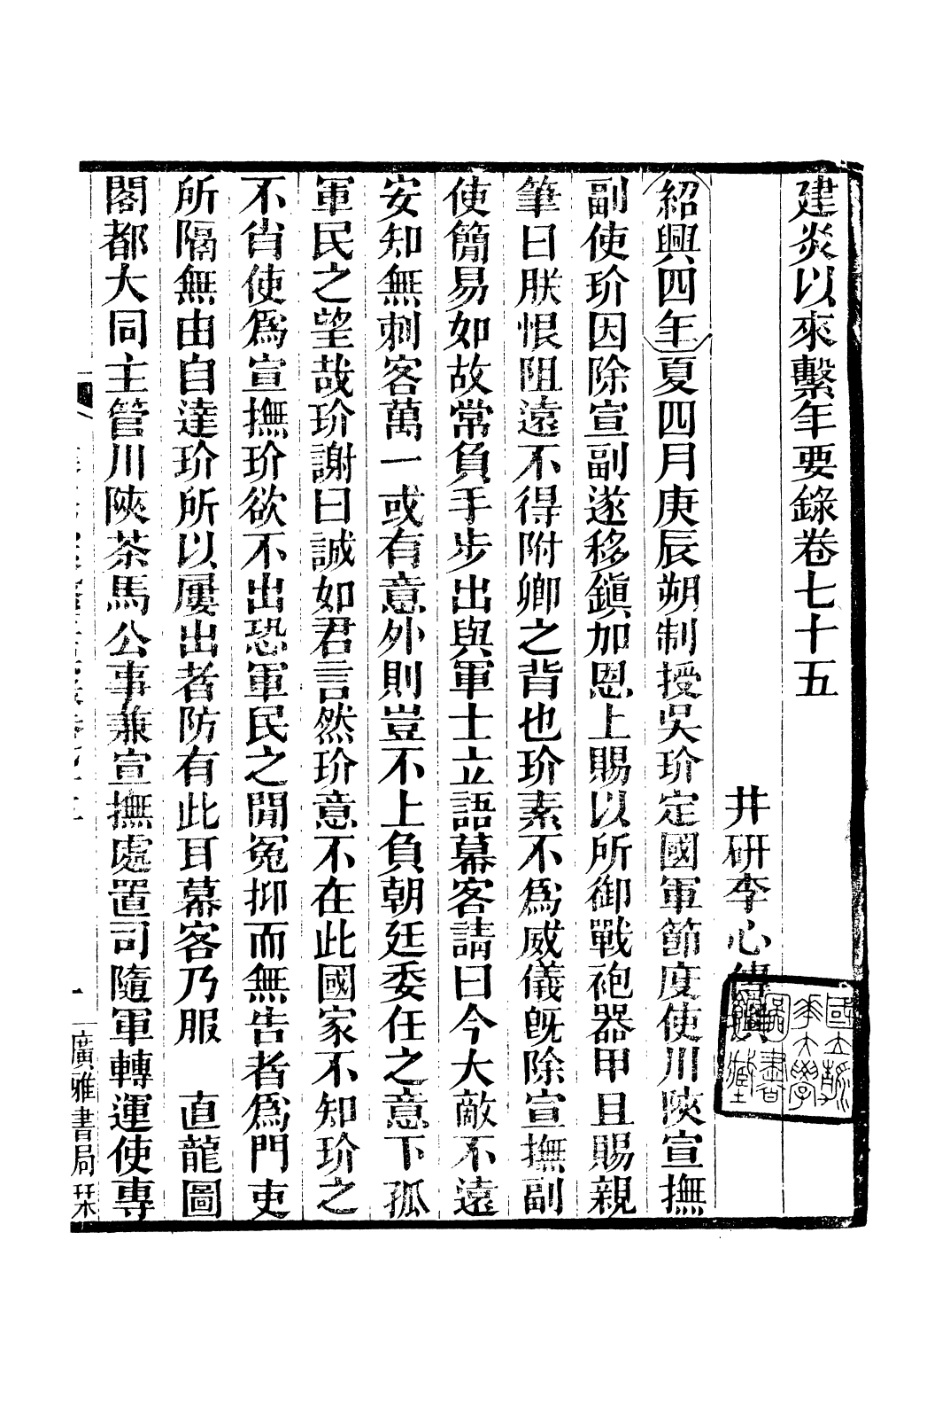 建炎以來繫年要錄卷七十五
井研李心傳撰
紹興四年夏四月庚辰朔制授吳玠定國軍節度使川陝宣撫
副使玠因除宣副遂移鎭加恩上賜以所御戰袍器甲且賜親
筆曰朕恨阻遠不得附卿之背也玠素不爲威儀旣除宣撫副
使簡易如故常負手步出與軍士立語幕客請曰今大敵不遠
安知無刺客萬一或有意外則豈不上負朝廷委任之意下孤
軍民之望哉玠謝曰誠如君言然玠意不在此國家不知玠之
不肖使爲宣撫玠欲不出恐軍民之閒冤抑而無告者爲門吏
所隔無由自達玠所以屢出者防有此耳幕客乃服　直龍圖
閣都大同主管川陝茶馬公事兼宣撫處置司隨軍轉運使專
一
廣雅書局栞
國立清
華大學
圖書
館藏